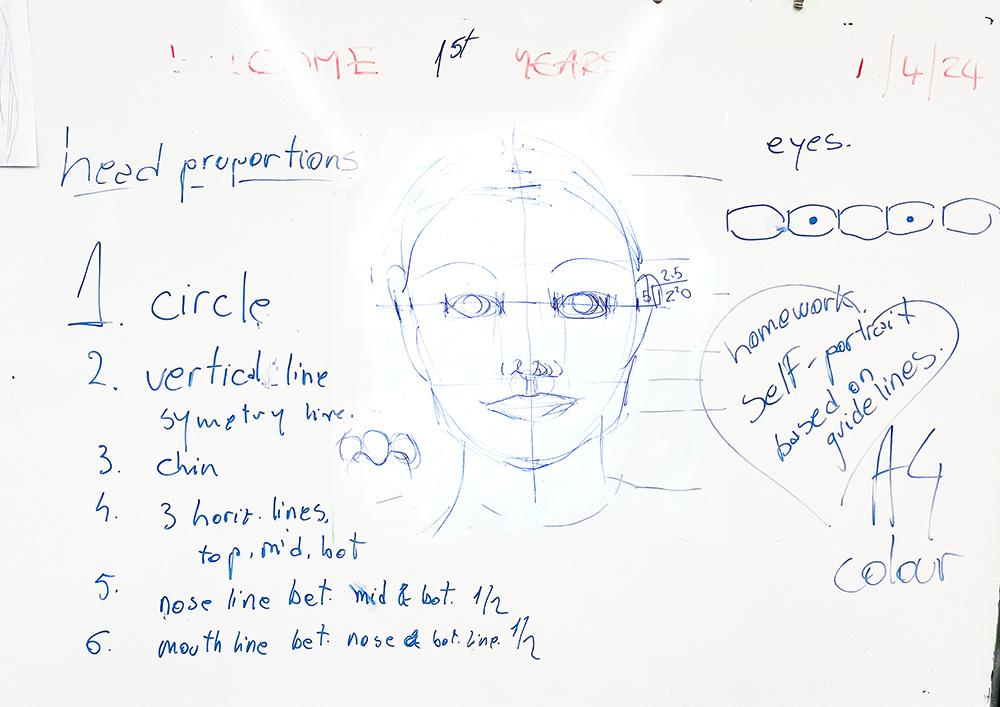 COME 1st YEARS
1/4/24
head proportions
1. circle
2. vertical line
symetry line.
3. chin
4. 3 horiz. lines,
top, mid, bot
5. nose line bet. mid & bot. 1/2
6. mouth line bet. nose & bot. line. 1/2
eyes.
2.5
homework
self-portrait
based on
guidelines.
A4
colour